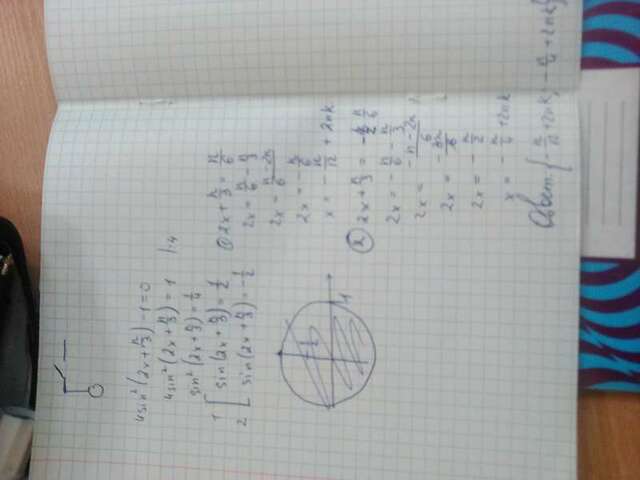 4sin²(2x + π/3) - 1 = 0
4sin²(2x + π/3) = 1 |:4
sin²(2x + π/3) = 1/4
1 [ sin(2x + π/3) = 1/2
2 [ sin(2x + π/3) = -1/2
① 2x + π/3 = π/6
2x = π/6 - π/3
2x = π - 2π/6
2x = -π/6
x = -π/12 + 2πk
② 2x + π/3 = -π/6
2x = -π/6 - π/3
2x = -π - 2π/6
2x = -3π/6
2x = -π/2
x = -π/4 + 2πk
Ответ: { -π/12 + 2πk; -π/4 + 2πk }